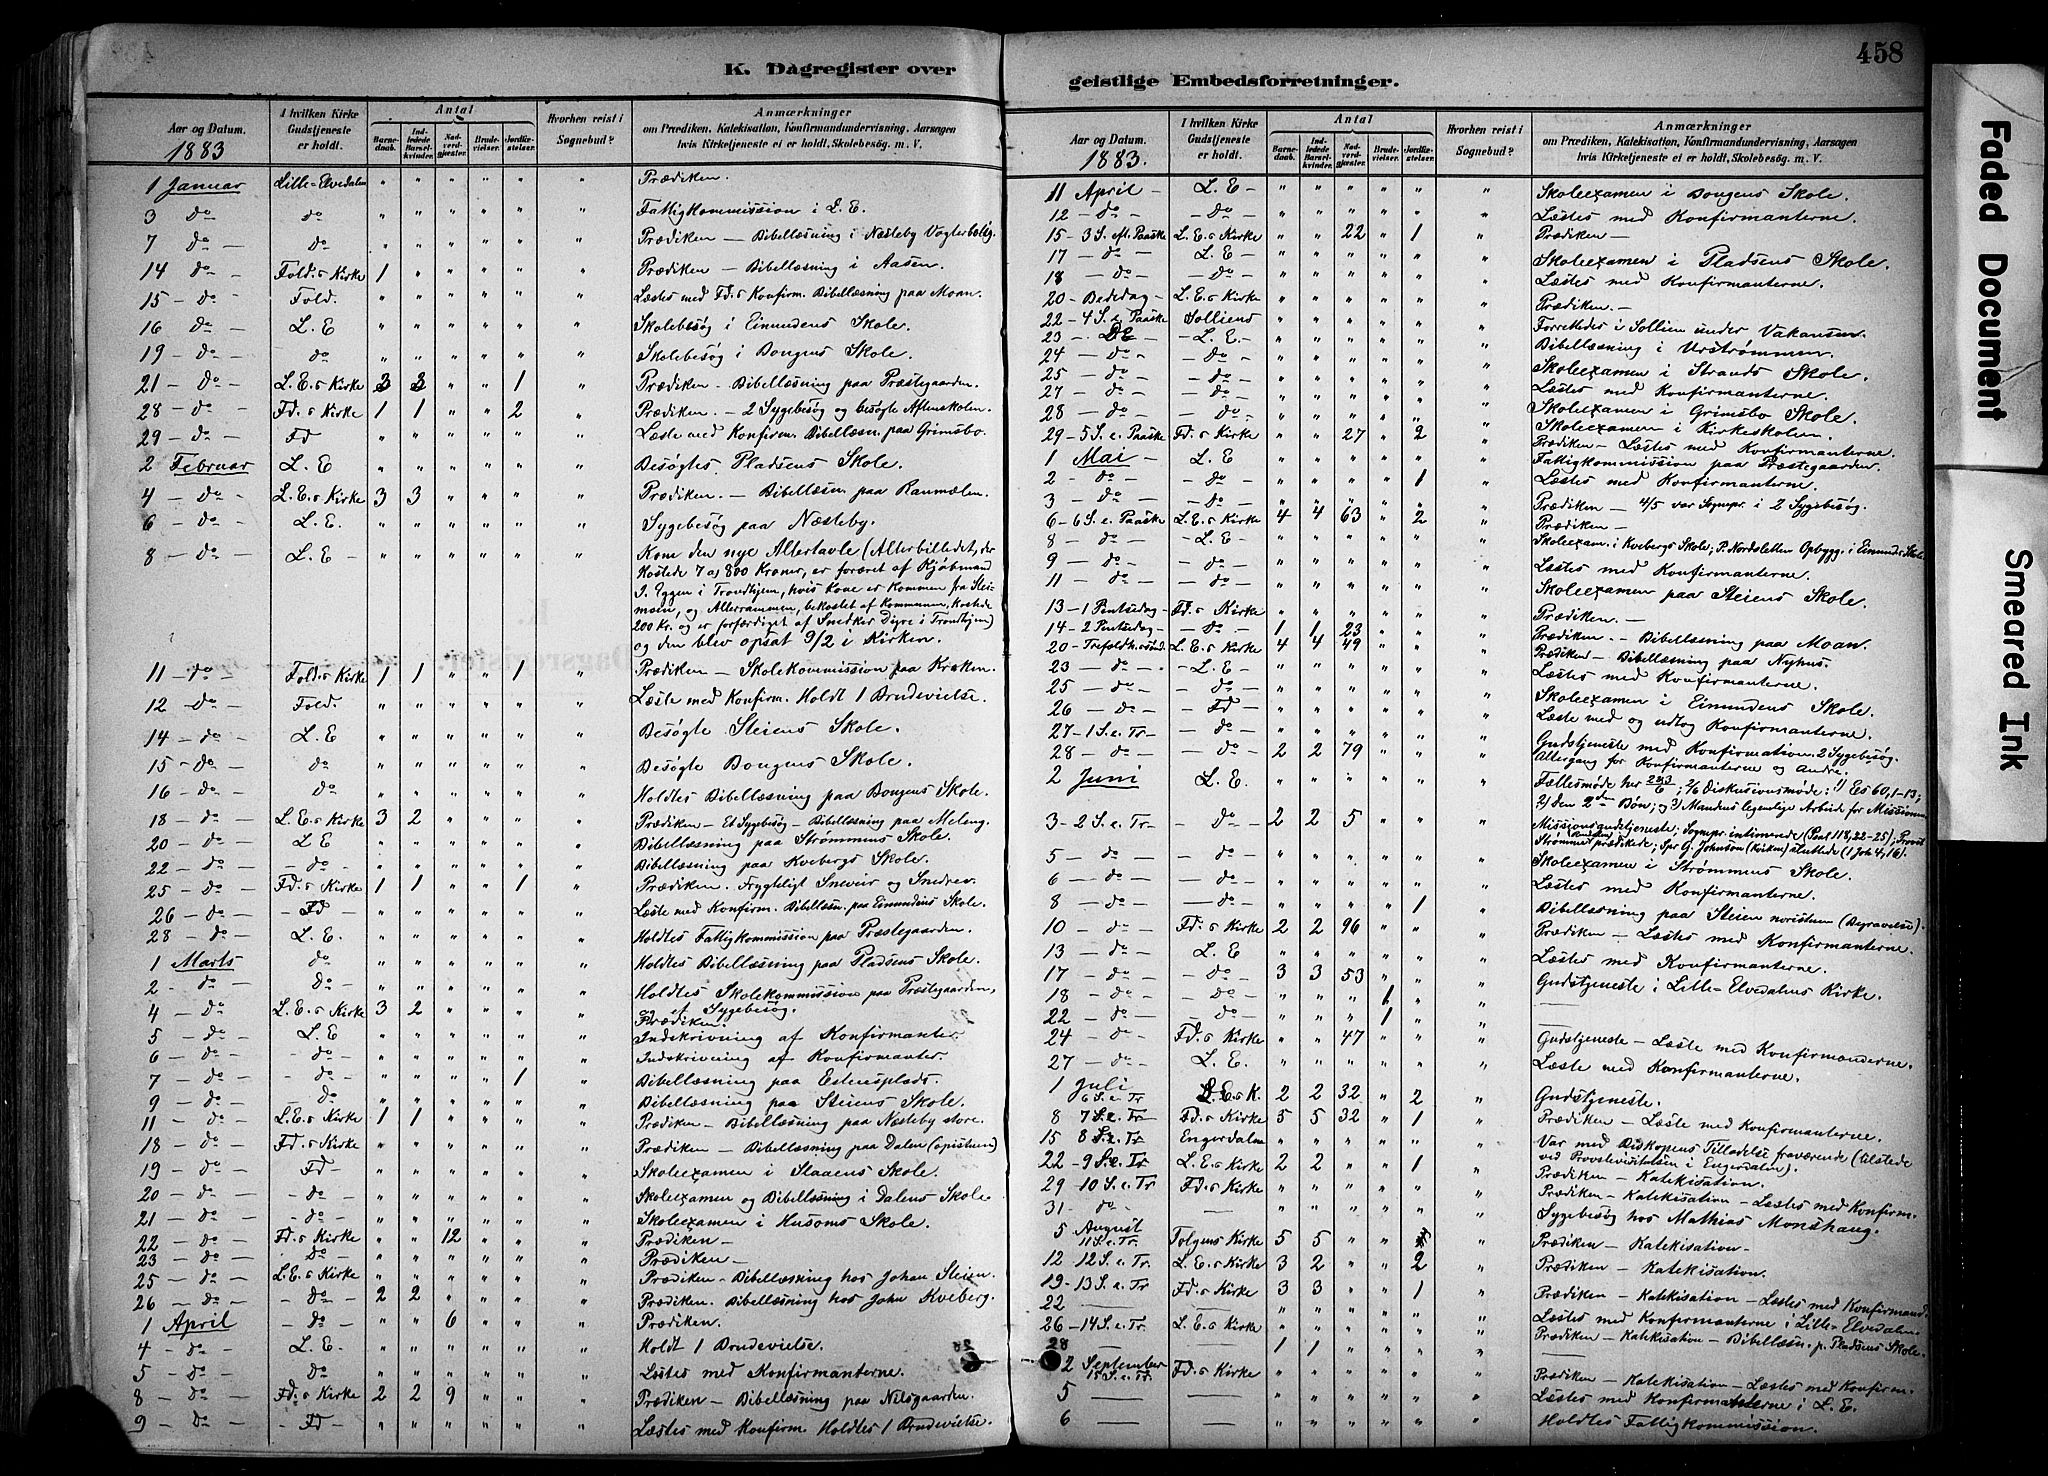 K. Dagregister over
Aar og Datum. | I hvilken Kirke Gudstjeneste er holdt. | Antal | Barnedaab. | Indledede Barselkvinder. | Nadverdgjester. | Brudevielser. | Jordfæstelser. | Hvorhen reist i Sognebud? | Anmærkninger om Prædiken, Katekisation, Konfirmandundervisning, Aarsagen hvis Kirketjeneste ei er holdt, Skolebesøg. m. V.
1883
1 Januar | Lille-Elvedalen | " | " | " | " | " | " | Prædiken.
3 - do | do | " | " | " | " | " | " | Fattigkommission i L. E.
7 - do - | do | " | " | " | " | " | " | Prædiken - Bibellæsning i Næsleby Vogterbolig.
14 - do | Fold.s Kirke | 1 | " | " | " | " | " | Prædiken - Bibellæsning i Aasen.
15 - do - | Fold. | " | " | " | " | " | " | Læstes med Fd.s Konfirm. Bibellæsning paa Moan.
16 - do | L. E | " | " | " | " | " | " | Skolebesøg i Einundens Skole.
19 - do | do | " | " | " | " | " | " | Skolebesøg i Bongens Skole.
21 - do - | L. E.s Kirke | 3 | 3 | " | " | 1 | " | Prædiken - Bibellæsning paa Præstegaarden.
28 - do - | Fd.s Kirke | 1 | 1 | " | " | 2 | " | Prædiken. - 2 Sygebesøg og besøgte Aftenskolen.
29 - do - | Fd | " | " | " | " | " | " | Læste med Konfirm. Bibellæsn. paa Grimsbo.
2 Februar | L. E | " | " | " | " | " | " | Besøgtes Pladsens Skole.
4 - do | L. E.s Kirke | 3 | 3 | " | " | " | " | Prædiken. - Bibellæsn paa Ranmælen.
6 - do | L. E. | " | " | " | " | " | " | Sygebesøg paa Næsteby.
8 - do - | L. E | " | " | " | " | " | " | Kom den nye Altertavle (Alterbilledet, der
kostede 7 a 800 Kroner, er foræret af Kjøbmand
I. Eggen i Trondhjem, hvis Kone er kommen fra Stei-
moen, og Alterrammen, bekostet af Kommunen, kostede
200 Kr. og er forfærdiget af Snedker Digre i Trondhjem)
og den blev opsat 9/2 i Kirken.
11 - do | Fold.s Kirke | 1 | 1 | " | " | 1 | " | Prædiken - Skolekommission paa Kroken.
12 - do | Fold. | " | " | " | " | " | " | Læste med Konfirm. Holdt 1 Brudevielse.
14 - do | L. E | " | " | " | " | " | " | Besøgte Steiens Skole.
15 - do - | do | " | " | " | " | " | " | Besøgte Bongens Skole.
16 - do - | do | " | " | " | " | " | " | Holdtes Bibellæsning paa Bongens Skole.
18 - do - | L. E.s Kirke | 3 | 2 | " | " | " | " | Prædiken - Et Sygebesøg - Bibellæsning paa Meleng.
20 - do - | L. E | " | " | " | " | " | " | Bibellæsning paa Strømmens Skole.
22 - do - | - do - | " | " | " | " | " | " | Bibellæsning paa Kvebergs Skole.
25 - do - | Fd.s Kirke | 1 | 1 | " | " | 1 | " | Prædiken. Frygteligt Sneveir og Snedrev.
26 - do - | - Fd - | " | " | " | " | " | " | Læste med Konfirm. Bibellæsn. paa Einundens Skole.
28 - do - | L. E. | " | " | " | " | " | " | Holdtes Fattigkommission paa Præstegaarden.
1 Marts | do | " | " | " | " | " | " | Holdtes Bibellæsning paa Pladsens Skole.
2 - do | Do | " | " | " | " | " | " | Holdtes Skolekommission paa Præstegaarden,
og et Sygebesøg.
4 - do | L. E.s Kirke | 3 | 2 | " | " | " | " | Prædiken.
5 - do | L. E | " | " | " | " | " | " | Indskrivning af Konfirmanter
6 - do | - do - | " | " | " | " | " | " | Indskrivning af Konfirmanter.
7 - do - | - do - | " | " | " | " | 1 | " | Bibellæsning paa Estensplads.
9 - do - | do | " | " | " | " | " | " | Bibellæsning paa Steiens Skole.
11 - do - | L. E.s Kirke | 1 | 1 | " | " | " | " | Prædiken - Bibellæsning paa Næsteby store.
18 - do - | Fd.s Kirke | " | " | " | " | " | " | Prædiken - Bibellæsning paa Dalen (opistuen)
19 - do - | Fd - | " | " | " | " | " | " | Skoleexamen i Slaaens Skole.
20 - do - | - do - | " | " | " | " | " | " | Skoleexamen og Bibellæsning i Dalens Skole
21 - do - | - do - | " | " | " | " | " | " | Skoleexamen i Husoms Skole.
22 - do - | Fd.s Kirke | " | " | 12 | " | " | " | Prædiken -
23 - do - | do | " | " | " | " | " | " | Prædiken -
25 - do - | L. E.s Kirke | " | " | " | " | " | " | Prædiken - Bibellæsning hos Johan Steien.
26 - do - | - do - | 2 | 2 | " | " | " | " | Prædiken. Bibellæsning hos John Kveberg.
1 April | - do - | " | " | 6 | " | " | " | Prædiken.
4 - do - | L. E. | " | " | " | " | " | " | Holdt 1 Brudevielse.
5 - do - | do | " | " | " | " | " | " | Læstes med Konfirmanterne.
8 - do - | Fd.s Kirke | 2 | 2 | 9 | " | " | " | Prædiken - Bibellæsning paa Nilsgaarden.
9 - do - | Fd | " | " | " | " | " | " | Læstes med Konfirm. Holdtes 1 Brudevielse.
geistlige Embedsforretninger.
458
Aar og Datum. | I hvilken Kirke Gudstjeneste er holdt. | Antal | Barnedaab. | Indledede Barselkvinder. | Nadverdgjester. | Brudevielser. | Jordfæstelser. | Hvorhen reist i Sognebud? | Anmærkninger om Prædiken, Katekisation, Konfirmandundervisning, Aarsagen hvis Kirketjeneste ei er holdt, Skolebesøg. m. V.
1883.
11 April - | L. E - | " | " | " | " | " | " | Skoleexamen i Bongens Skole.
12 - do - | - do - | " | " | " | " | " | " | Læstes med Konfirmanterne.
15 - 3 S. eft. Paaske | L. E.s Kirke | " | " | 22 | " | 1 | " | Prædiken -
17 - do - | L. E - | " | " | " | " | " | " | Skoleexamen i Pladsens Skole.
18 - do - | - do - | " | " | " | " | " | " | Læstes med Konfirmanterne.
20 - Bededag - | L. E.s Kirke | " | " | " | " | " | " | Prædiken. -
22 - 4 S. e. Paaske | Solliens | " | " | " | " | " | " | Forrettedes i Sollien under Vakansen.
23 - do | - L. E. - | " | " | " | " | " | " | Bibellæsning i Urstrømmen.
24 - do - | - do - | " | " | " | " | " | " | Skoleexamen i Strands Skole.
25 - do - | - do - | " | " | " | " | " | " | Læstes med Konfirmanterne.
27 - do - | - do - | " | " | " | " | " | " | Skoleexamen i Grimsbo Skole.
28 - do - | - do - | " | " | " | " | " | " | Skoleexamen i Kirkeskolen.
29 - 5 S. e. Paaske | Fd.s Kirke | " | " | 27 | " | 2 | " | Prædiken - Læstes med Konfirmanterne.
1 Mai - | L. E | " | " | " | " | " | " | Fattigkommission paa Præstegaarden.
2 - do - | - do - | " | " | " | " | 1 | " | Læstes med Konfirmanterne.
3 - do - | - do - | " | " | " | " | " | " | Prædiken - 4/5 var Sognepr. i 2 Sygebesøg.
6 - 6 S. e. Paaske | L. E.s Kirke | 4 | 4 | 63 | " | 2 | " | Prædiken -
8 - do - | - L. E - | " | " | " | " | " | " | Skoleexam. i Kvebergs Skole; P. Nordsletten Opbygg. i Einunds Skole
9 - do - | - do - | " | " | " | " | " | " | Læstes med Konfirmanterne.
11 - do - | - do - | " | " | " | " | " | " | Skoleexamen paa Steiens Skole.
13 - 1 Pintsedag - | Fd.s Kirke | " | " | " | " | " | " | Prædiken. -
14 - 2 Pintsedag | - do - | 1 | 1 | 23 | " | " | " | Prædiken. - Bibellæsning paa Moan.
20 - Trefoldh.sønd. | L. E.s Kirke | 4 | 4 | 49 | " | " | " | Prædiken - Bibellæsning paa Nyhus.
23 - do - | - L. E - | " | " | " | " | " | " | Læstes med Konfirmanterne.
25 - do - | - do - | " | " | " | " | " | " | Skoleexamen i Einundens Skole.
26 - do - | - Fd - | " | " | " | " | " | " | Læste med og udtog Konfirmanterne.
27 - 1 S. e. Tr - | - do - | " | " | " | " | " | " | Gudstjeneste med Konfirmation. 2 Sygebesøg.
28 - do - | - do - | 2 | 2 | 79 | " | " | " | Altergang for Konfirmanterne og Andre.
2 Juni | L. E. | " | " | " | " | " | " | Fællesmøde her 2 og 3/6; 2/6 Diskusionsmøde: 1) Es 60, 1-13;
2) den 2den Bøn; og 3) Mandens legemlige Arbeide for Missionen
3 - 2 S. e. Tr - | - do - | 2 | 2 | 5 | " | " | " | Missionsgudstjeneste; Sognepr. intimerede (Psal 118, 22-25); Provst
Strømme prædikede; Spr G. Johnson (Kirken) sluttede (1 Joh 4, 16).
5 - do - | - do - | " | " | " | " | " | " | Skoleexamen i Strømmens Skole.
6 - do - | - do - | " | " | " | " | " | " | Læstes med Konfirmanterne.
8 - do - | - do - | " | " | " | " | 1 | " | Bibellæsning paa Steien noristuen (Begravelse).
10 - do - | Fd.s Kirke | 2 | 2 | 96 | " | " | " | Prædiken - Læstes med Konfirmanterne.
13 - do | L. E | " | " | " | " | " | " | Læstes med Konfirmanterne.
17 - do - | - do - | 3 | 3 | 53 | " | " | " | Gudstjeneste i Lille-Elvedalens Kirke.
18 - do - | - do - | " | " | " | 6 | " | " | -
22 - do - | - do - | " | " | " | 1 | " | "
24 - do | Fd.s Kirke | " | " | 47 | " | " | " | Gudstjeneste - Læste med Konfirmanderne.
27 - do - | L. E. | " | " | " | " | " | " | Læste med Konfirmanterne.
1 Juli 6 S. e. Tr | L. E.s K. | 2 | 2 | 32 | " | 2 | " | Gudstjeneste.
8 7 S. e. Tr | Fd.s Kirke | 5 | 5 | 32 | " | 1 | " | Prædiken - Læste med Konfirmanterne.
15 8 S. e. Tr | Engerdalen | " | " | " | " | " | " | Var med Biskopens Tilladelse fraværende (tilstede
ved Provstevisitatsen i Engerdalen).
22 - 9 S. e. Tr | L. E.s Kirke | 2 | 2 | " | " | 1 | " | Prædiken - Katekisation.
29 - 10 S. e. Tr | Fd.s Kirke | " | " | " | " | " | " | Prædiken - Katekisation - Læstes med Konfirm.
31 - do | - | " | " | " | " | " | " | Sygebesøg hos Mathias Monshaug.
5 August 11 S. e. Tr | Tolgens Kirke | 5 | 5 | " | " | | " | Prædiken - Katekisation -
12 12 S. e. Tr. | L. E.s Kirke | 3 | 2 | " | " | 2 | " | Prædiken - Katekisation.
19 - 13 S. e. Tr | Fd.s Kirke | 3 | 3 | " | " | 1 | " | Prædiken - Katekisation - Læstes med Konfirmand.
22 - | - | " | " | " | " | " | " | Læstes med Konfirmanterne i Lille-Elvedalen.
26 - 14 S. e. Tr | L. E.s Kirke | " | " | " | " | " | " | Prædiken - Katekisation - Bibellæsn. p. Pladsens Skole.
28 - | - | 1 | 1 | " | " | " | "
2 September 15 S. e. Tr. | Fd.s Kirke | " | " | " | " | " | " | Prædiken - Katekisation - Læstes med Konfirm.
5 - | - | " | " | " | " | " | " | Læstes med Konfirmanterne i L. E.
6 - | - | " | " | " | " | " | " | Holdtes Fattigkommission.
Faded Document
Smeared Ink